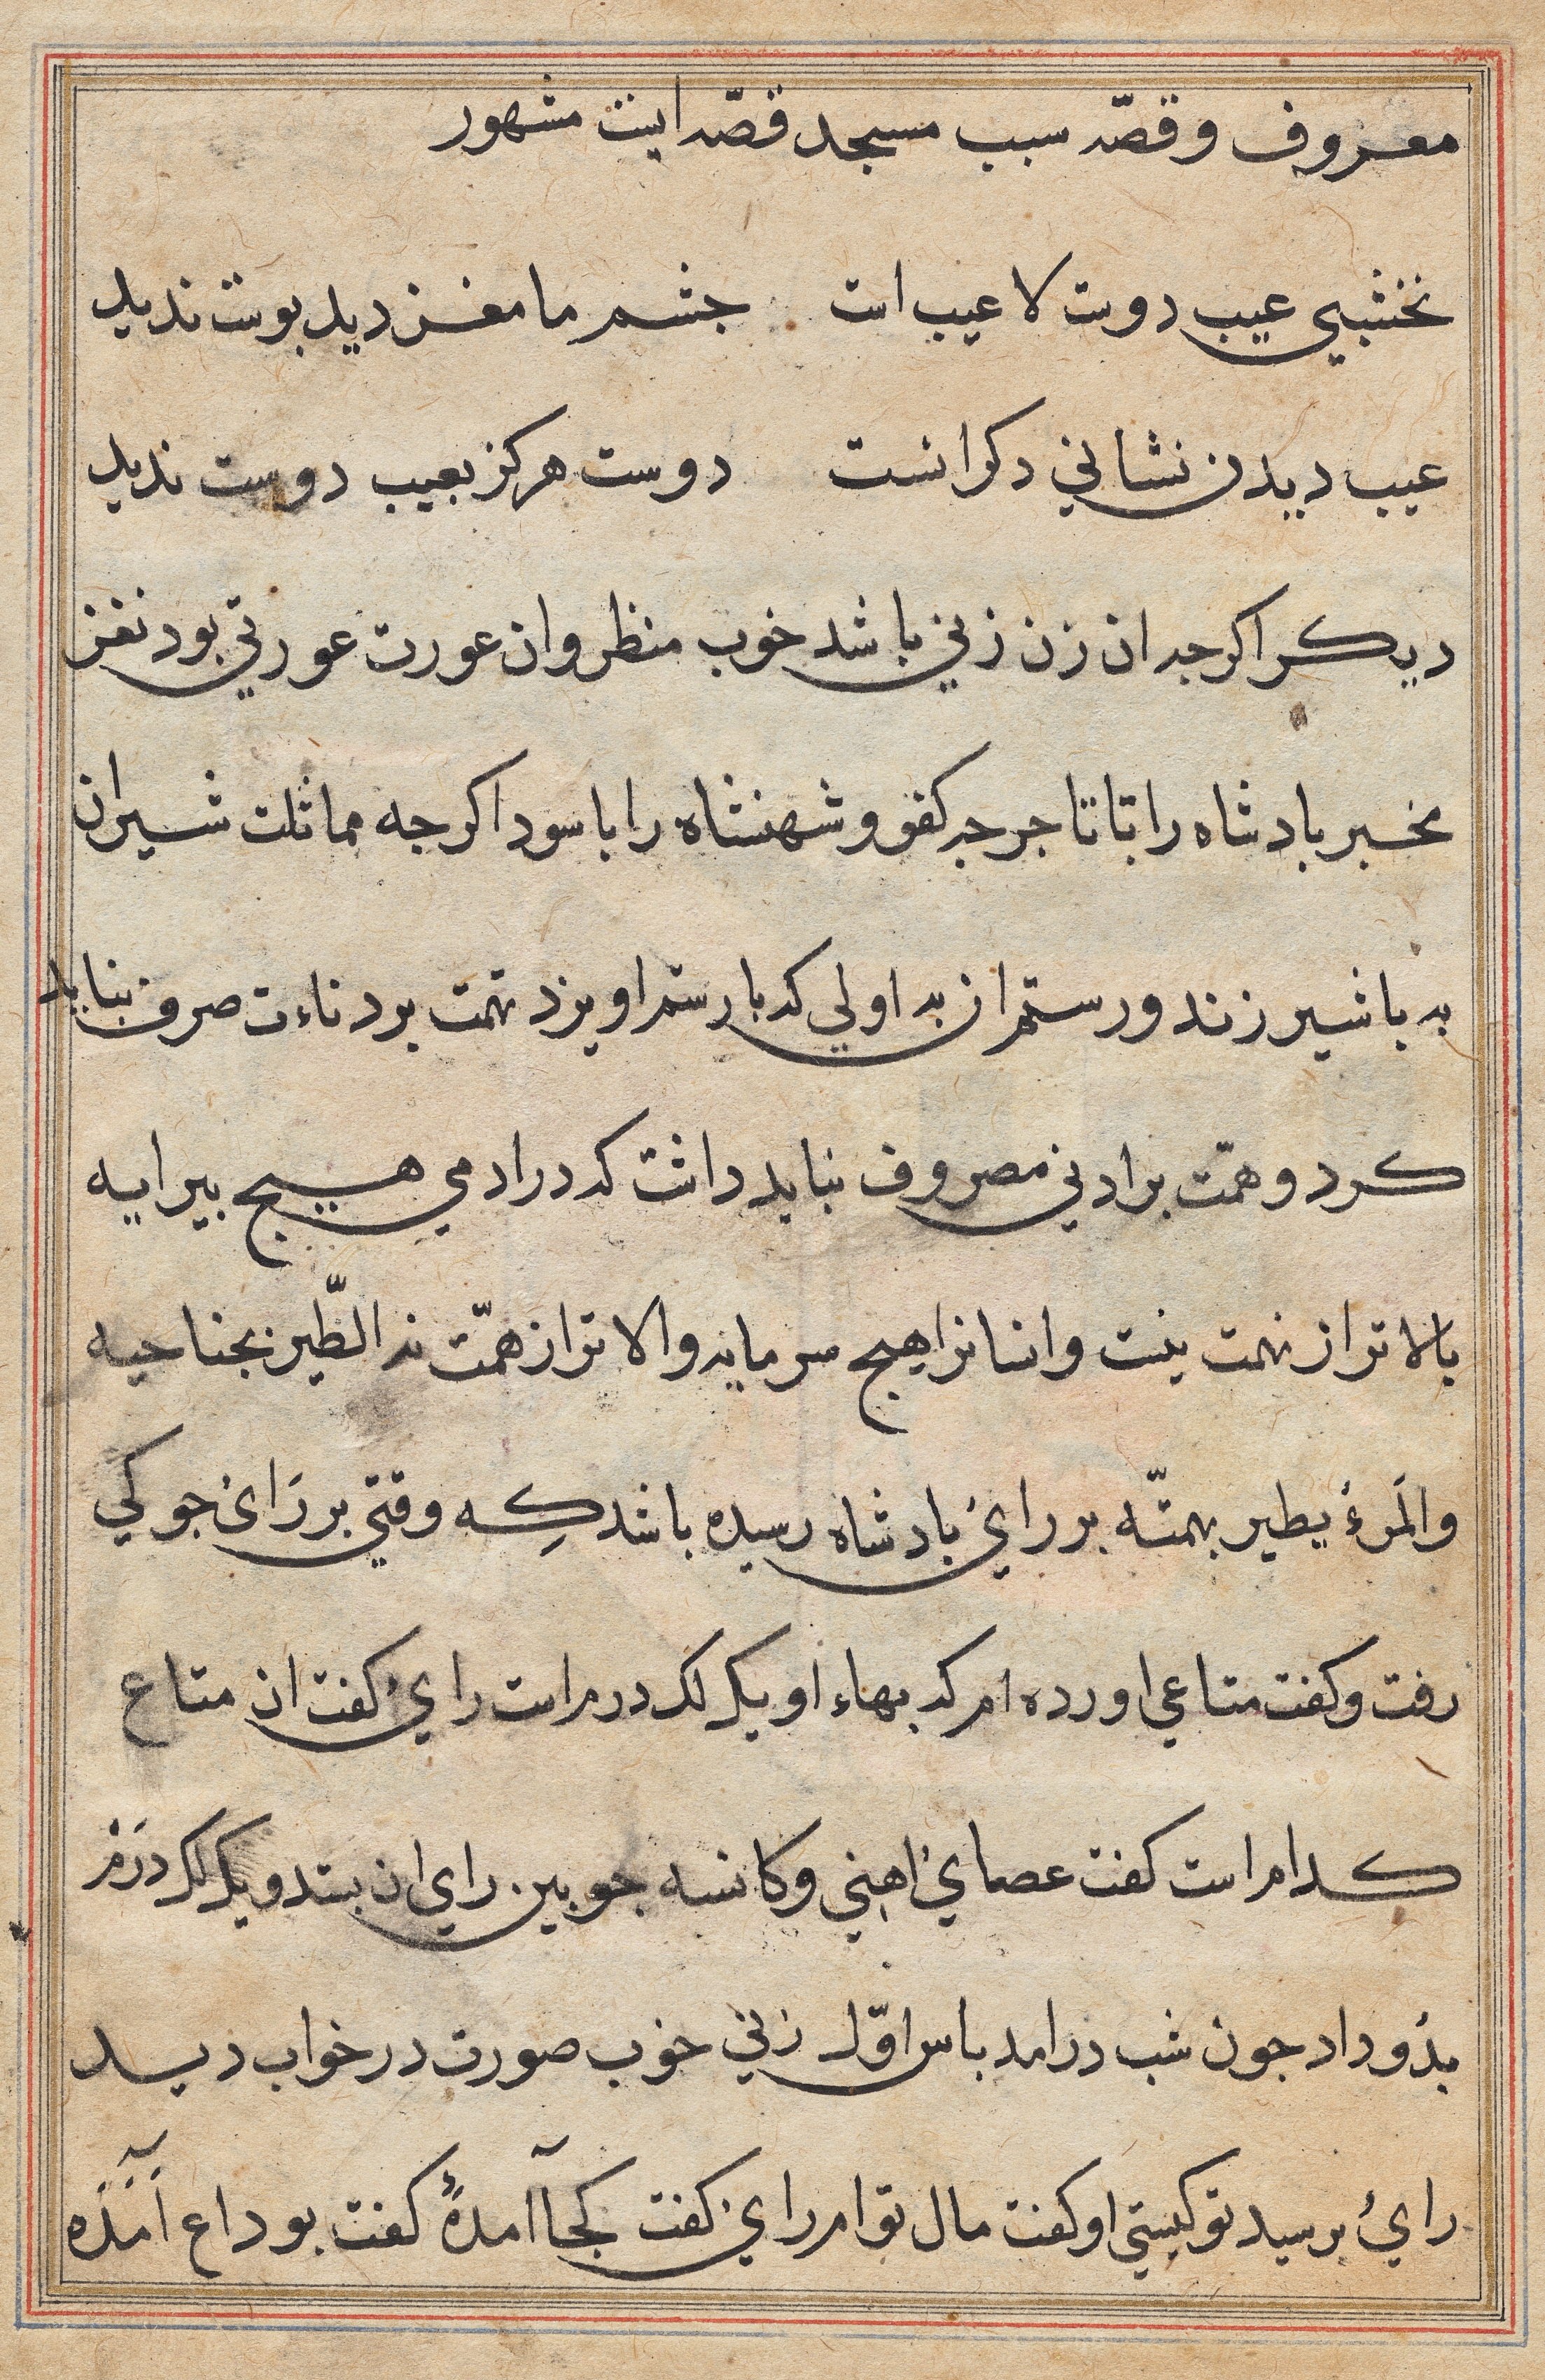 معروف و قصّه سبب مسجد قصّه ایست مشهور
نخشبي عیب دوست لا عیب است جشم ما مغز دید بوست ندید
عیب دیدن نشاني دکرانست دوست هرکز بعیب دوست ندید
دیکر اکرجه ان زن زني باشد خوب منظر وان عورت عورتي بود نغز
مخبر بادشاه را بتاتاجر جه کفو و شهنشاه را با سودا کرجه مماثلت شیران
به با شیر زند و رستم ان به اولي که با رستم اویزد نهمت بر دناءت صرف نباید
کرد و همّت بر ادني مصروف نباید داشت که در ادمي هیج بیرایه
بالاتر از نهمت نیست و انسانرا هیج سرمایه والاتر از همّت نه الطّیر بجناحیه
والمَرءُ یطیر بهمتّه بر رائ بادشاه رسیده باشد کِه وقتي بر رَائ جوکي
رفت و کفت متاعي اورده ام که بهاء او یک لک درم است رائ کفت ان متاع
کدام است کفت عصائ اهني و کانسه جوبین راي ان بستد و یک لک درَمْ
بدُو داد جون شب درامد باس اوّل زني خوب صورت در خواب دید
رائ برسید تو کیستي او کفت مال توام رائ کفت کجا آمدهٔ کفت بوداع آمَدَه